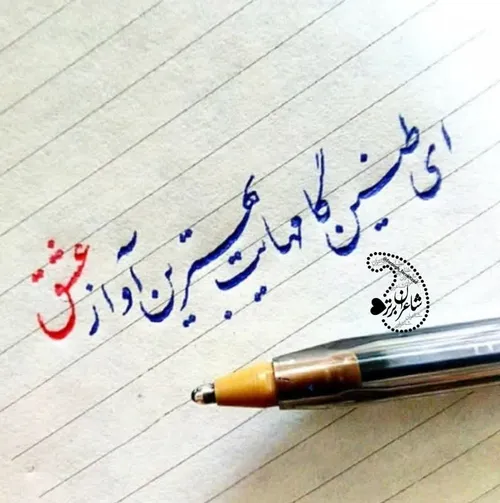 ای طنین گامهایت بهترین آواز عشق
شاعران برتر